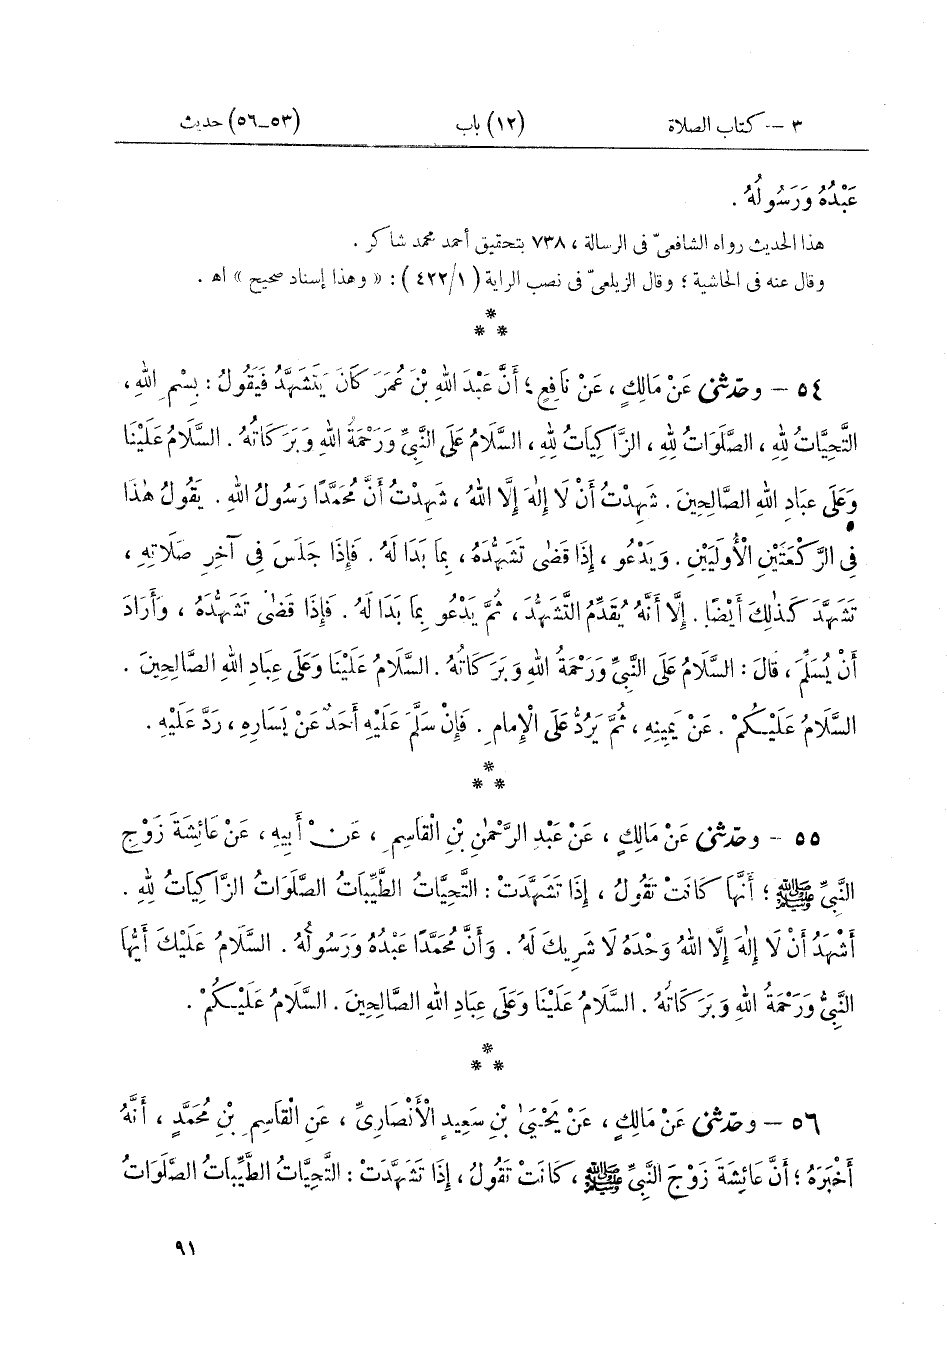 ٣ — كتاب الصلاة (١٢) باب (٥٣–٥٦) حديث
عَبْدُهُ وَرَسُولُهُ .
هذا الحديث رواه الشافعىّ فى الرسالة ، ٧٣٨ بتحقيق أحمد محمد شاكر .
وقال عنه فى الحاشية ؛ وقال الزيلعىّ فى نصب الراية ( ١/٤٢٢ ) : « وهذا إسناد صحيح » اهـ .
*
* *
٥٤ – وحدّثنى عَنْ مَالِكٍ ، عَنْ نَافِعٍ ؛ أَنَّ عَبْدَ اللهِ بْنَ عُمَرَ كَانَ يَتَشَهَّدُ فَيَقُولُ : بِسْمِ اللهِ ،
التَّحِيَّاتُ لِلهِ ، الصَّلَوَاتُ لِلهِ ، الزَّاكِيَاتُ لِلهِ ، السَّلَامُ عَلَى النَّبِىِّ وَرَحْمَةُ اللهِ وَبَرَكَاتُهُ . السَّلَامُ عَلَيْنَا
وَعَلَى عِبَادِ اللهِ الصَّالِحِينَ . شَهِدْتُ أَنْ لَا إِلٰهَ إِلَّا اللهُ ، شَهِدْتُ أَنَّ مُحَمَّدًا رَسُولُ اللهِ . يَقُولُ هٰذَا
فِى الرَّكْعَتَيْنِ الْأُولَيَيْنِ . وَيَدْعُو ، إِذَا قَضٰى تَشَهُّدَهُ ، بِمَا بَدَا لَهُ . فَإِذَا جَلَسَ فِى آخِرِ صَلَاتِهِ ،
تَشَهَّدَ كَذٰلِكَ أَيْضًا . إِلَّا أَنَّهُ يُقَدِّمُ التَّشَهُّدَ ، ثُمَّ يَدْعُو بِمَا بَدَا لَهُ . فَإِذَا قَضٰى تَشَهُّدَهُ ، وَأَرَادَ
أَنْ يُسَلِّمَ ، قَالَ : السَّلَامُ عَلَى النَّبِىِّ وَرَحْمَةُ اللهِ وَبَرَكَاتُهُ . السَّلَامُ عَلَيْنَا وَعَلَى عِبَادِ اللهِ الصَّالِحِينَ .
السَّلَامُ عَلَيْكُمْ . عَنْ يَمِينِهِ ، ثُمَّ يَرُدُّ عَلَى الْإِمَامِ . فَإِنْ سَلَّمَ عَلَيْهِ أَحَدٌ عَنْ يَسَارِهِ ، رَدَّ عَلَيْهِ .
*
* *
٥٥ – وحدّثنى عَنْ مَالِكٍ ، عَنْ عَبْدِ الرَّحْمٰنِ بْنِ الْقَاسِمِ ، عَنْ أَبِيهِ ، عَنْ عَائِشَةَ زَوْجِ
النَّبِىِّ ﷺ ؛ أَنَّهَا كَانَتْ تَقُولُ ، إِذَا تَشَهَّدَتْ : التَّحِيَّاتُ الطَّيِّبَاتُ الصَّلَوَاتُ الزَّاكِيَاتُ لِلهِ .
أَشْهَدُ أَنْ لَا إِلٰهَ إِلَّا اللهُ وَحْدَهُ لَا شَرِيكَ لَهُ . وَأَنَّ مُحَمَّدًا عَبْدُهُ وَرَسُولُهُ . السَّلَامُ عَلَيْكَ أَيُّهَا
النَّبِىُّ وَرَحْمَةُ اللهِ وَبَرَكَاتُهُ . السَّلَامُ عَلَيْنَا وَعَلَى عِبَادِ اللهِ الصَّالِحِينَ . السَّلَامُ عَلَيْكُمْ .
*
* *
٥٦ – وحدّثنى عَنْ مَالِكٍ ، عَنْ يَحْيَىٰ بْنِ سَعِيدٍ الْأَنْصَارِىِّ ، عَنِ الْقَاسِمِ بْنِ مُحَمَّدٍ ، أَنَّهُ
أَخْبَرَهُ ؛ أَنَّ عَائِشَةَ زَوْجَ النَّبِىِّ ﷺ ، كَانَتْ تَقُولُ ، إِذَا تَشَهَّدَتْ : التَّحِيَّاتُ الطَّيِّبَاتُ الصَّلَوَاتُ
٩١